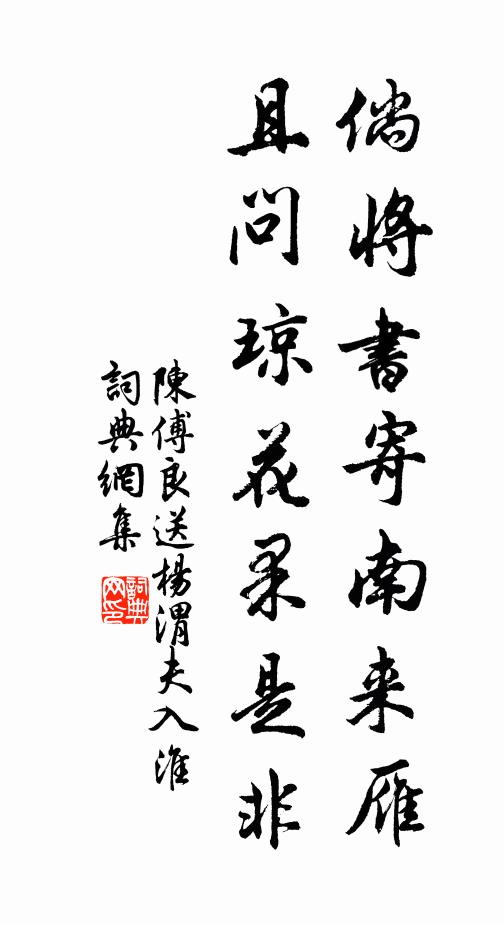 倘將書寄南来雁
且問琼花果是非
陳傅良送楊渭夫入淮
詞典網集
詞典
网印